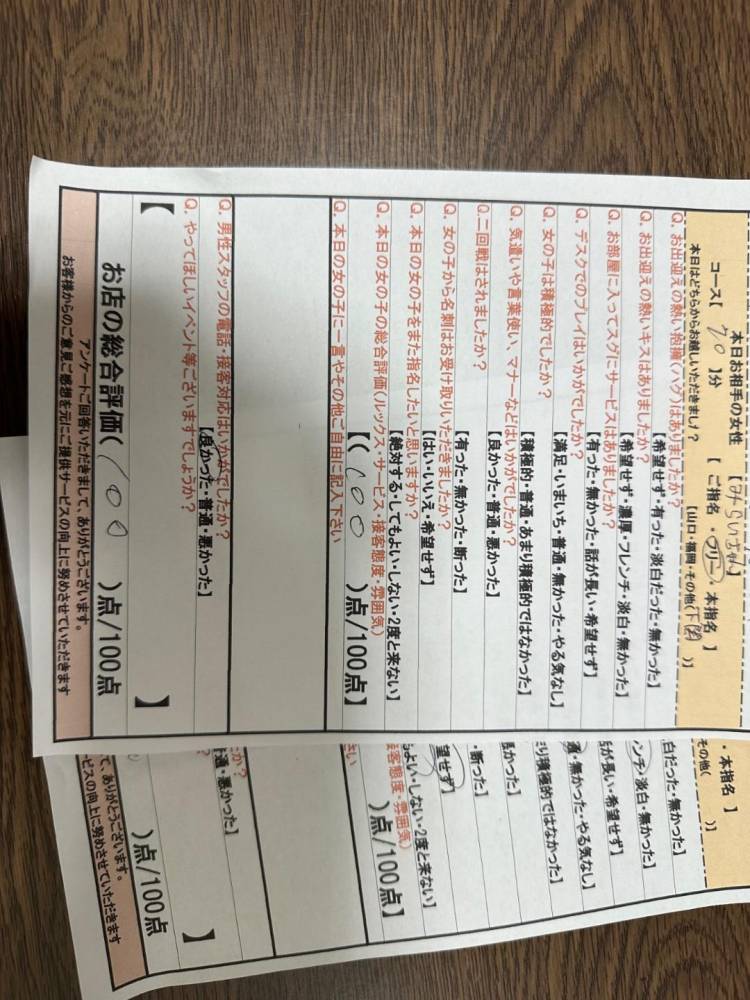 本日お相手の女性 【みらいちゃん】
コース【 70 】分 【 ご指名 ・ フリー ・ 本指名 】
本日はどちらからお越しいただきまし？ 【山口・福岡・その他(下関 )】
Q. お出迎えの熱い抱擁(ハグ)はありましたか？
【希望せず・有った・淡白だった・無かった】
Q. お出迎えの熱いキスはありましたか？
【希望せず・濃厚・フレンチ・淡白・無かった】
Q. お部屋に入ってスグにサービスはありましたか？
【有った・無かった・話が長い・希望せず】
Q. デスクでのプレイはいかがでしたか？
【満足・いまいち・普通・無かった・やる気なし】
Q. 女の子は積極的でしたか？
【積極的・普通・あまり積極的ではなかった】
Q. 気遣いや言葉使い、マナーなどはいかがでしたか？
【良かった・普通・悪かった】
Q. 二回戦はされましたか？
【有った・無かった・断った】
Q. 女の子から名刺はお受け取りいただきましたか？
【はい・いいえ・希望せず】
Q. 本日の女の子をまた指名したいと思いますか？
【絶対する・してもよい・しない・2度と来ない】
Q. 本日の女の子の総合評価(ルックス・サービス・接客態度・雰囲気)
【( 100 )点/100点】
Q. 本日の女の子に一言やその他ご自由に記入下さい
Q. 男性スタッフの電話・接客対応はいかがでしたか？
【良かった・普通・悪かった】
Q. やってほしいイベント等ございますでしょうか？
【 】
お店の総合評価( 100 )点/100点
アンケートご回答いただきまして、ありがとうございます。
お客様からのご意見ご感想を元にご提供サービスの向上に努めさせていただきます
・ 本指名 】
その他( )】
白だった・無かった】
ンチ・淡白・無かった】
が長い・希望せず】
通・無かった・やる気なし】
り積極的ではなかった】
悪かった】
・断った】
望せず】
もよい・しない・2度と来ない】
接客態度・雰囲気)
)点/100点】
さい
か？
普通・悪かった】
？
】
)点/100点
て、ありがとうございます。
ービスの向上に努めさせていただきます